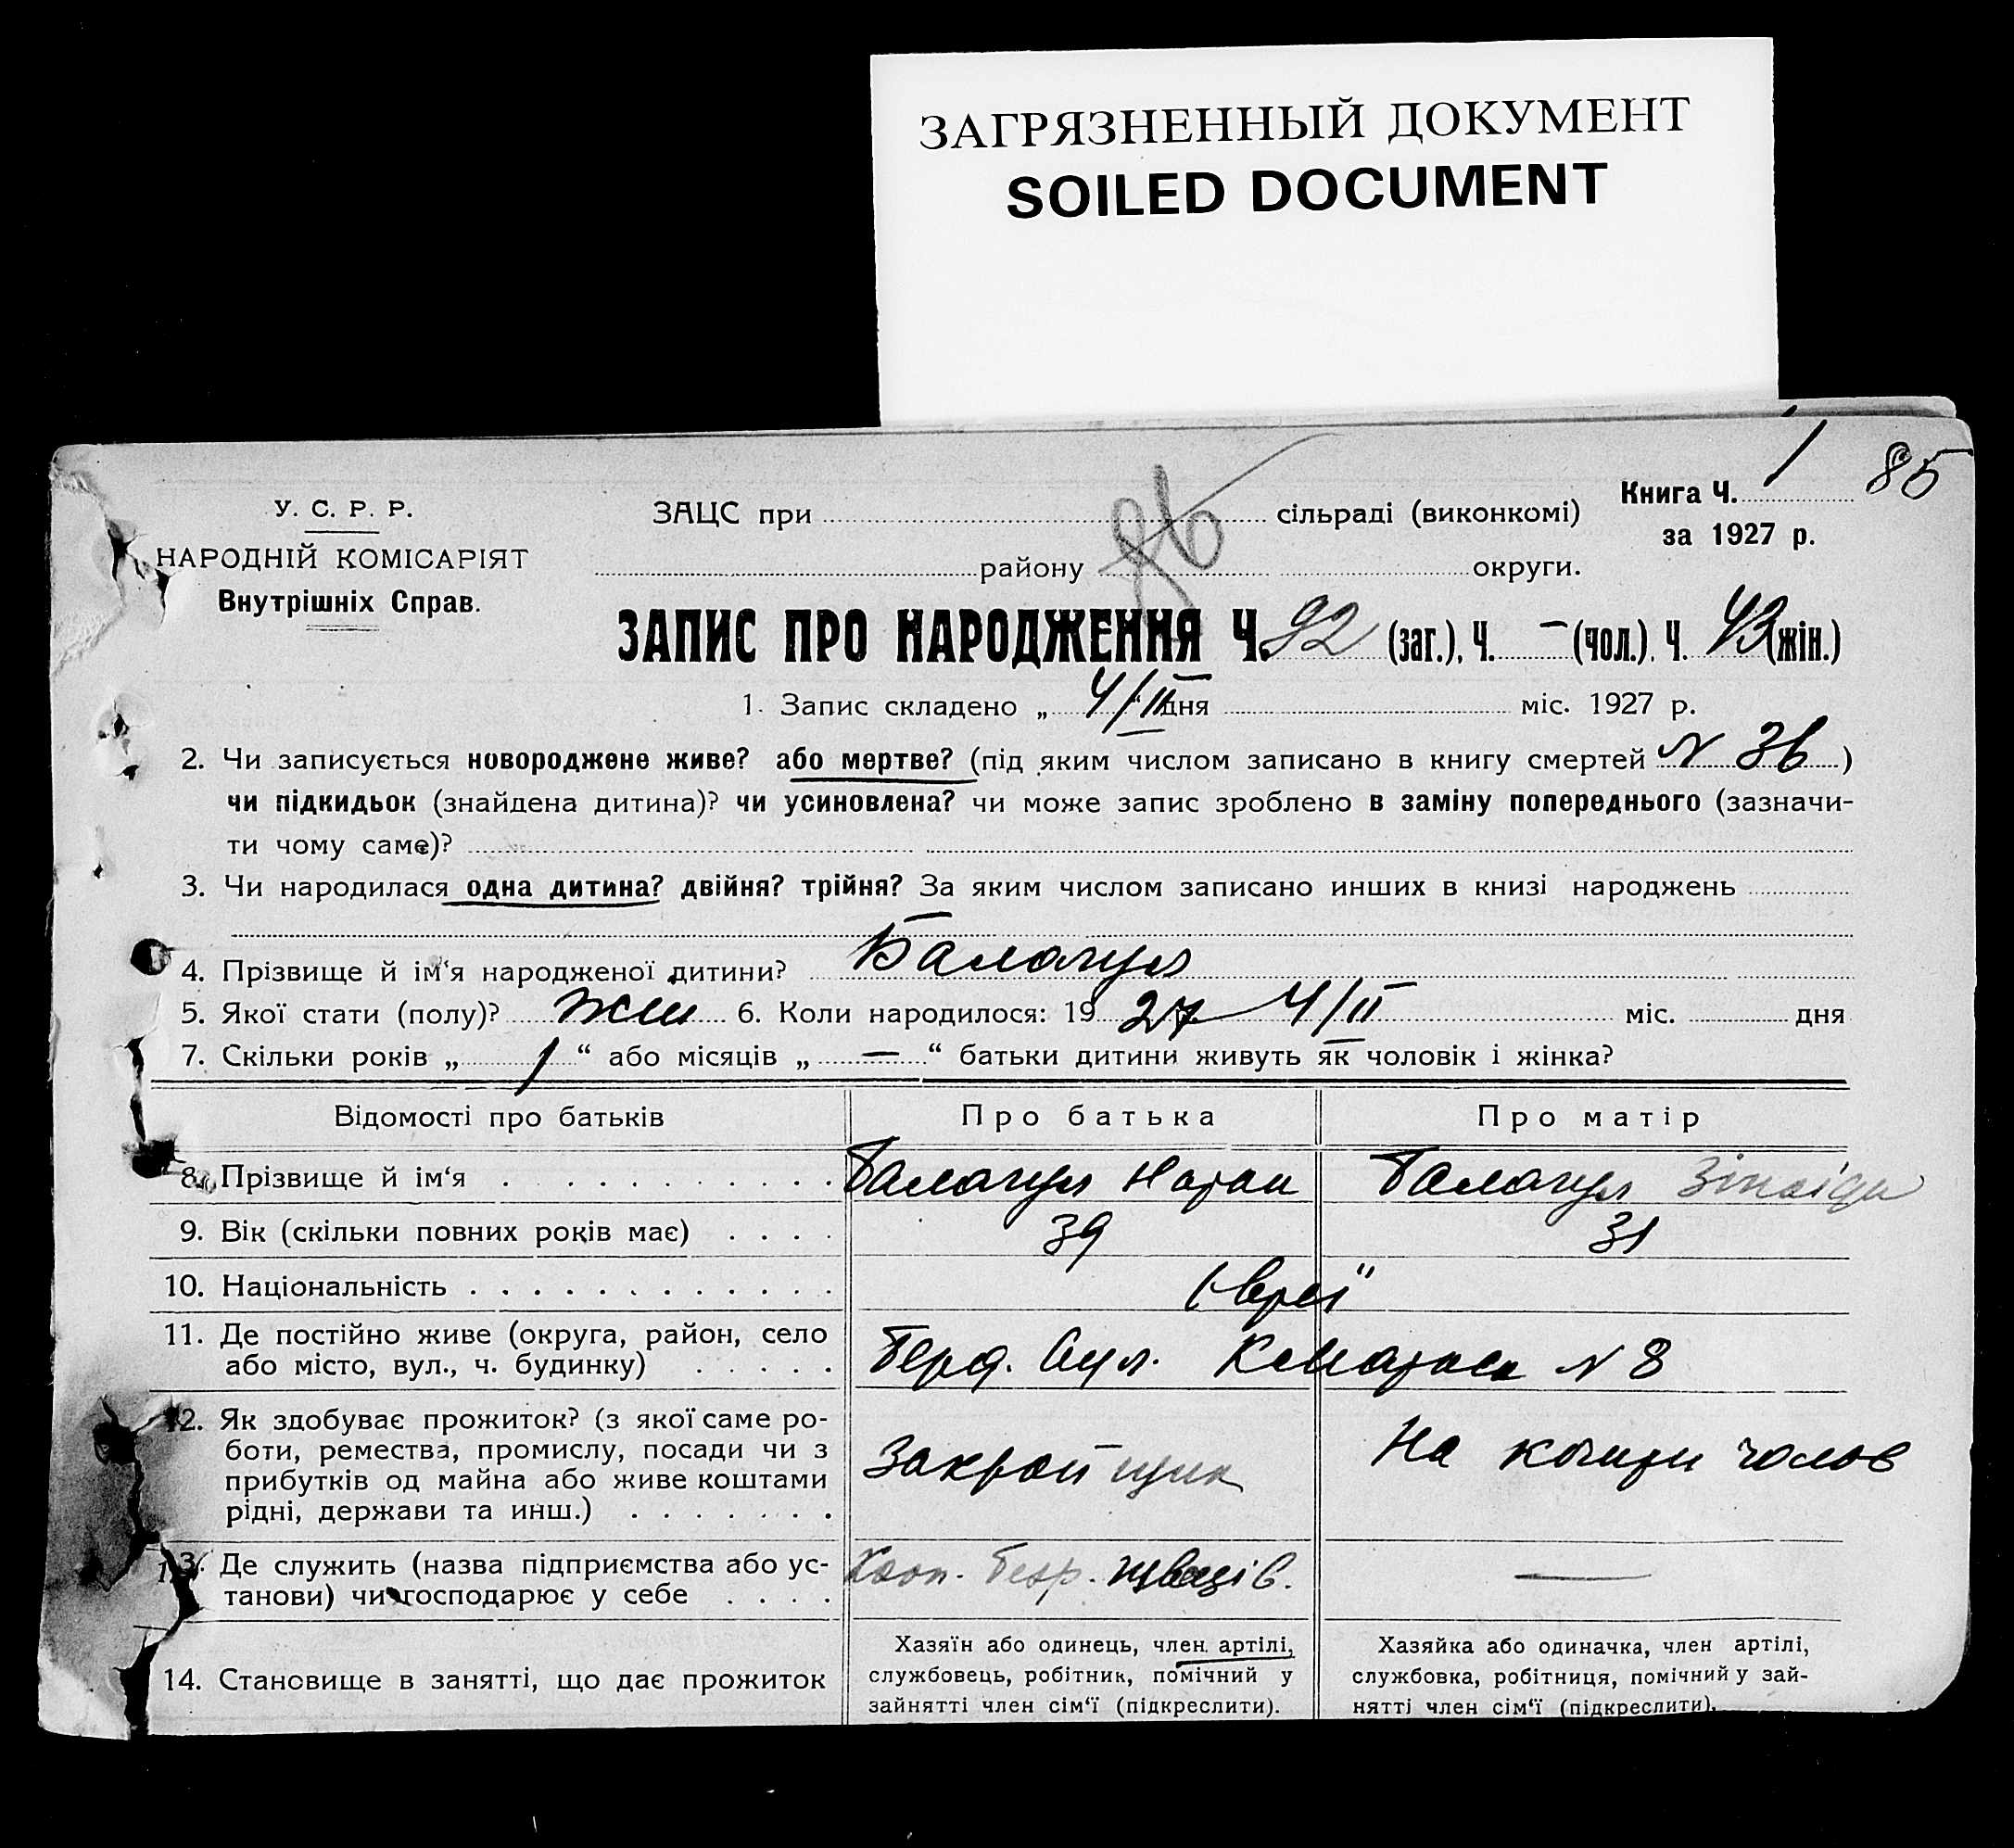 ЗАГРЯЗНЕННЫЙ ДОКУМЕНТ
SOILED DOCUMENT
85
У. С. Р. Р.
НАРОДНІЙ КОМІСАРІЯТ
Внутрішніх Справ.
ЗАЦС при сільраді (виконкомі)
району округи.
86
Книга Ч. 1
за 1927 р.
ЗАПИС ПРО НАРОДЖЕННЯ Ч. 92 (заг.), Ч. — (чол.), Ч. 43 (жін.)
1. Запис складено „ 4/II “ дня міс. 1927 р.
2. Чи записується новороджене живе? або мертве? (під яким числом записано в книгу смертей N 36 )
чи підкидьок (знайдена дитина)? чи усиновлена? чи може запис зроблено в заміну попереднього (зазначи-
ти чому саме)?
3. Чи народилася одна дитина? двійня? трійня? За яким числом записано инших в книзі народжень
4. Прізвище й ім‘я народженої дитини? Балагул
5. Якої стати (полу)? жін 6. Коли народилося: 1927 4/II міс. дня
7. Скільки років „ 1 “ або місяців „ — “ батьки дитини живуть як чоловік і жінка?
Відомості про батьків Про батька Про матір
8. Прізвище й ім‘я Балагул Натан Балагул Зінаіда
9. Вік (скільки повних років має) 39 31
10. Національність Євреї
11. Де постійно живе (округа, район, село
або місто, вул., ч. будинку) Берд. вул. К Маркса N 8
12. Як здобуває прожиток? (з якої саме ро-
боти, ремества, промислу, посади чи з
прибутків од майна або живе коштами
рідні, держави та инш.)
Закройщик
На кошти чолов
13. Де служить (назва підприємства або ус-
танови) чи господарює у себе
Кооп. швеців. —
14. Становище в занятті, що дає прожиток
Хазяїн або одинець, член артілі,
службовець, робітник, помічний у
зайнятті член сім‘ї (підкреслити).
Хазяйка або одиначка, член артілі,
службовка, робітниця, помічний у зай-
нятті член сім‘ї (підкреслити).